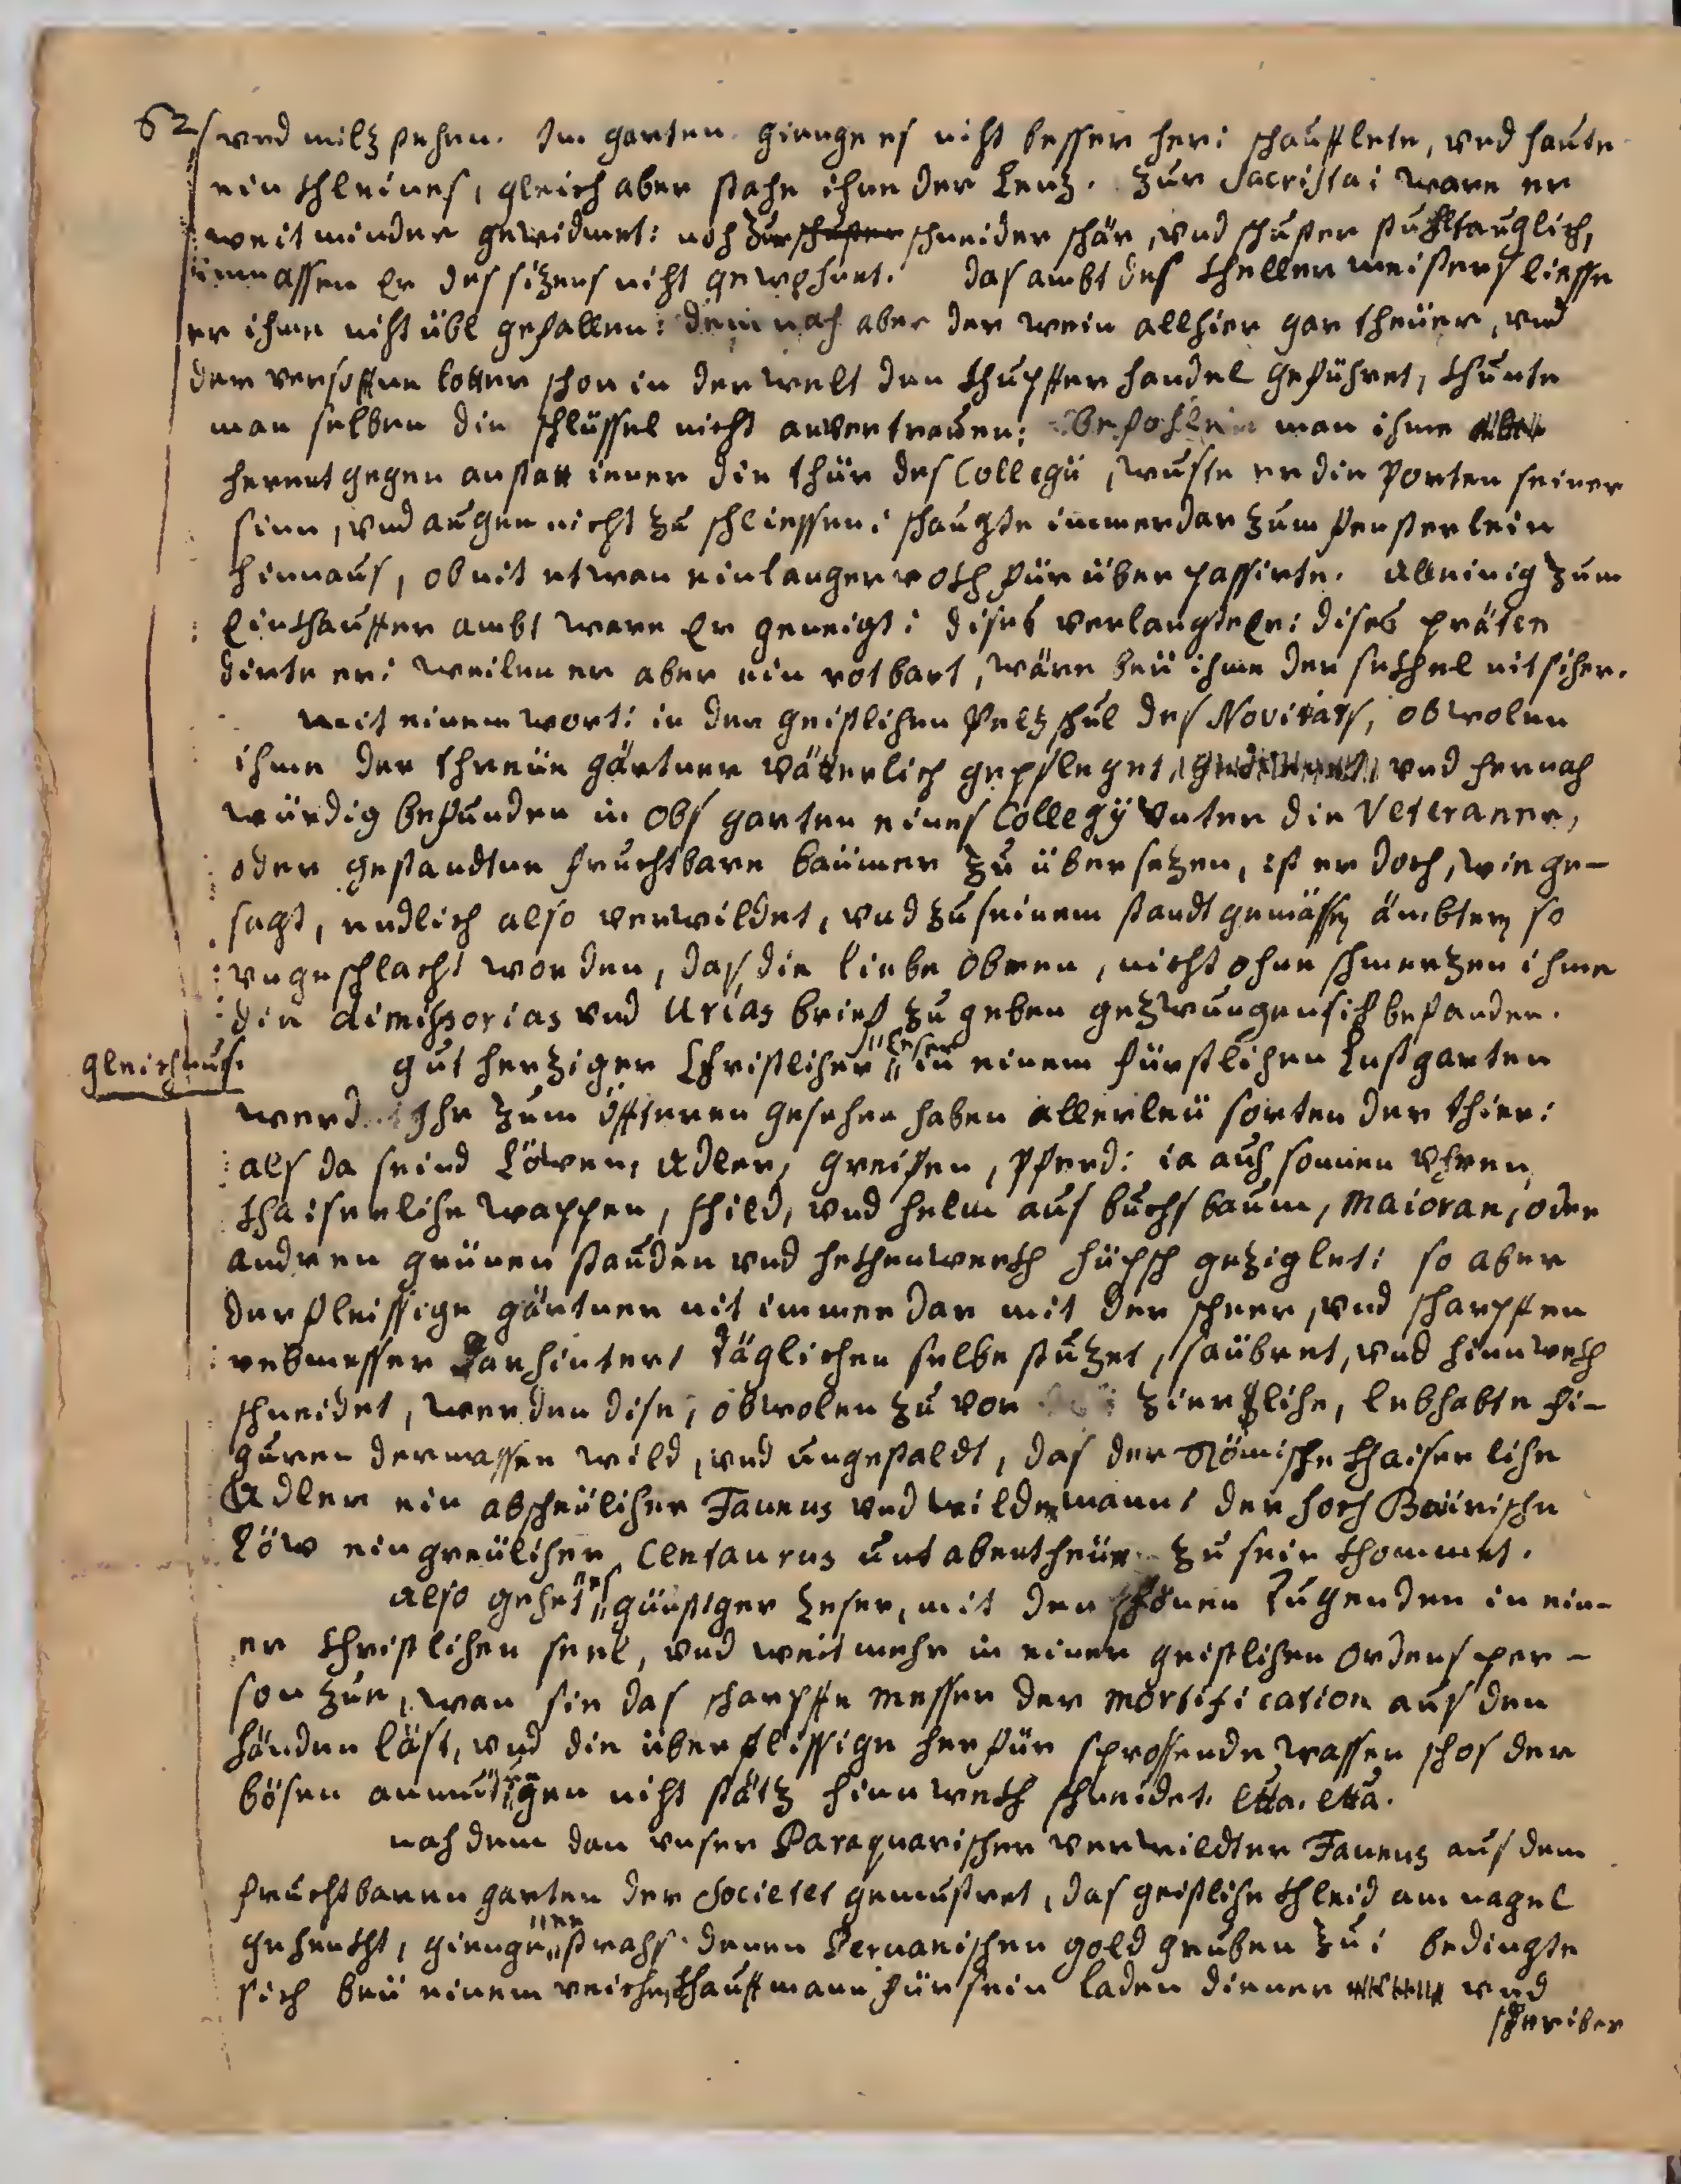 62
vnd miltz stehen. Im garten gienge es nicht besser her: schauflete, vnd haute
ein khleines, gleich aber stahe ihne der Lentz. Zur Sacristai ware er
weit minder gewidmet: noch zur schuster schneider schär, vnd schuster stuhl tauglich,
immassen Er des sitzens nicht gewohnet. das ambt des khellermeisters liesse
er ihme nicht übl gefallen: demnach aber der wein allhier gar theüer, vnd
der versoffne lotter schon in der welt den khupffer handel geführet, khunte
man selben die schlüssel nicht anvertrauen: befohlen man ihme
herentgegen anstatt iener die thür des Collegii, wuste er die Porten seiner
sinn, vnd augen nicht zu schliessen: schaugte immerdar zum fensterlein
hinnaus, ob nit etwan ein langer rokh fürüber passirte. Alleinig zum
Einkhauffer ambt ware Er geneigt: dises verlangte Er: dises präten
dirte er: weilen er aber ein rotbart, wäre beü ihme der sekhel nit sicher.
mit einem wort: in der geistlichen Peltzschul des Novitiats, obwolen
ihme der threüe gärtner vätterlich gepfleget, vnd hernach
würdig befunden in Obs garten eines Collegÿ vnter die Veteranne,
oder gestandtne fruchtbare baümer zu übersetzen, ist er doch, wie ge-
sagt, endlich also verwildet, vnd zu seinem standt gemässen ämbtern so
vngeschlacht worden, das die liebe Obren, nicht ohne schmertzen ihme
die dimissorias vnd Urias brief zu geben gezwungen sich befanden.
gleichnus.
gut hertziger Christlicher Leser in einem fürstlichen Lustgarten
werd Ihr zum öffteren gesehen haben allerleü sorten der thier:
als da seind Löwen, Adler, greifen, Pferd: ia auch sonnen Vhren,
khaiserliche wappen, schild, vnd helm aus buchsbaum, Maioran, oder
andren grünen stauden vnd hekhenwerkh hüpsch geziglet: so aber
der fleissige gärtner nit immerdar mit der scher, vnd scharpffen
rebmesser darhinter, täglichen selbe stutzet, saübret, vnd hinnwekh
schneidet, werden dise, obwolen zu vor zierliche, lebhafte fi-
guren dermassen wild, vnd ungestaldt, das der Römische khaiserliche
Adler ein abscheülicher Faunus vnd wilder mann: der hoch Bairische
Löw ein greülicher Centaurus unt abentheür zu sein khommet.
Also gehet es günstiger Leser, mit den schönen Tugenden in ein-
er Christlichen seel, vnd weit mehr in einer geistlichen Ordens per-
son zue, wan sie das scharpffe messer der mortification aus den
händen läst, vnd die überflissige herfür sprossende wasser schos der
bösen anmutungen nicht stätz hinnwekh schneidet. etta. etta.
nach dem dan vnser Paraquarischer verwildter Faunus aus dem
fruchtbaren garten der Societet gemustret, das geistliche khleid am nagel
gehenkht, gienge er strahs denen Peruanischen gold gruben zu: bedingte
sich beü einem reichen khauffmann für sein laden diener vnd
schreiber